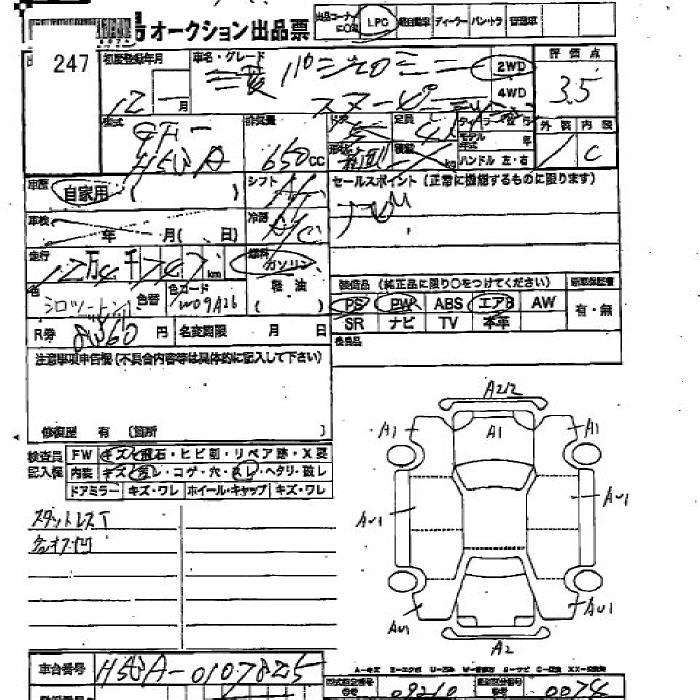 オークション出品票
出品コーナーに○印 LPG 軽自動車 ディーラー バン・トラ
247
初度登録年月 車名・グレード
三菱 パジェロミニ
2WD
4WD
評価点
3.5
12 月
型式 排気量
H58A 650cc
ドア 定員
ハンドル 左・右
外装 内装
C
車歴 自家用 ( )
シフト AT
セールスポイント (正常に機能するものに限ります)
ナビ
車検 年 月( 日)
冷房 A/C
走行 12万4千747km
燃料 ガソリン
軽油
( )
装備品 (純正品に限り○をつけてください)
PS PW ABS エアB AW
SR ナビ TV 本革
有・無
色 シロツートン 色替 色コード W09A26
R券 8460円 名変期限 月 日
後備品
注意事項申告欄 (不具合内容等は具体的に記入して下さい)
修復歴 有 〔箇所 〕
検査員 FW キズ・飛石・ヒビ割・リペア跡・X要
記入欄 内装 キズ・汚レ・コゲ・穴・スレ・ヘタリ・破レ
ドアミラー キズ・ワレ ホイール・キャップ キズ・ワレ
スタットレスT
各オフ凹
A2/2
A1 A1 A1
AU1 AU1
AU1 AU1
A2
車台番号 H58A-0107825
09210